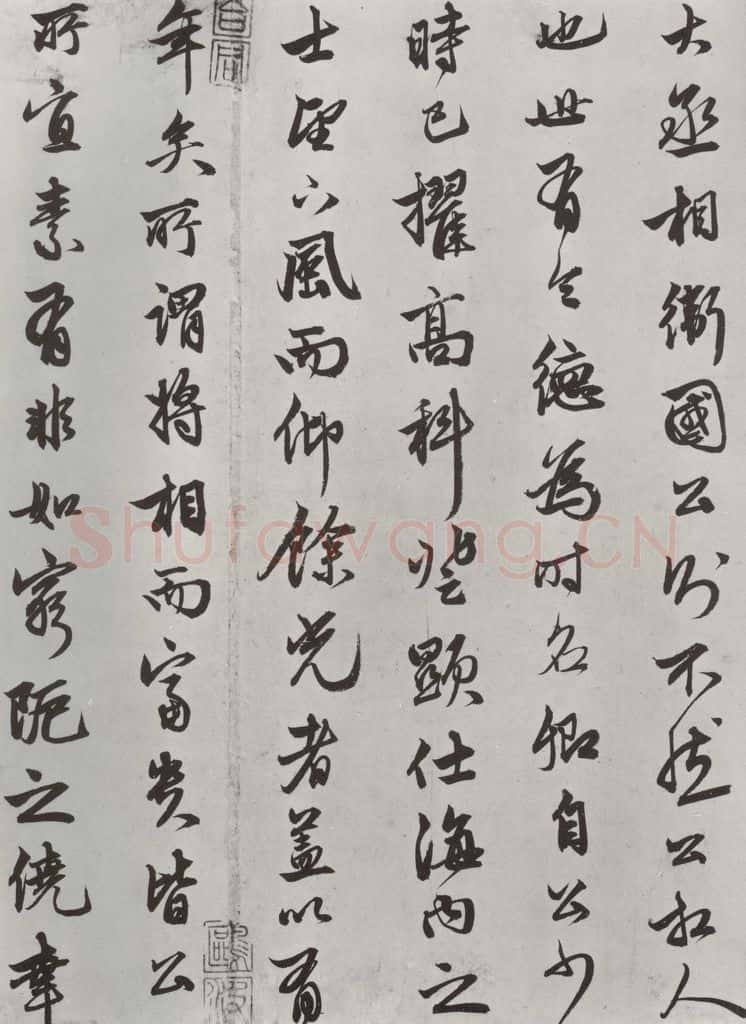 大丞相衛國公則不然公相人
也世有令德為時名卿自公少
時已擢高科登顯仕海內之
士望下風而仰餘光者蓋以有
年矣所謂將相而富貴皆公
所宜素有非如窮阨之僥幸
Shufawang.CN